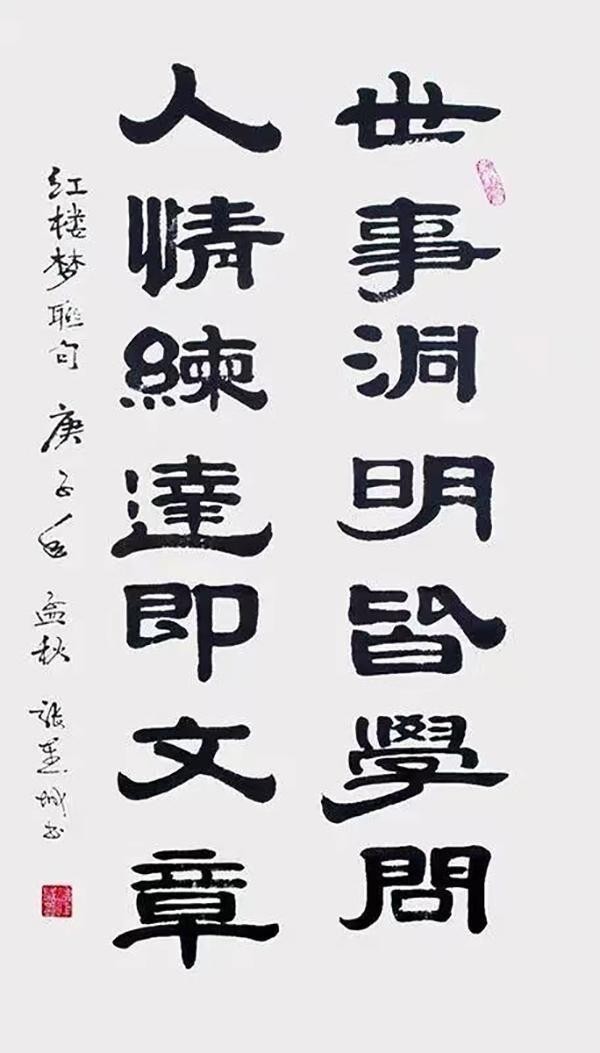 世事洞明皆學問
人情練達即文章
红楼梦联句 庚子 孟秋 張 城书